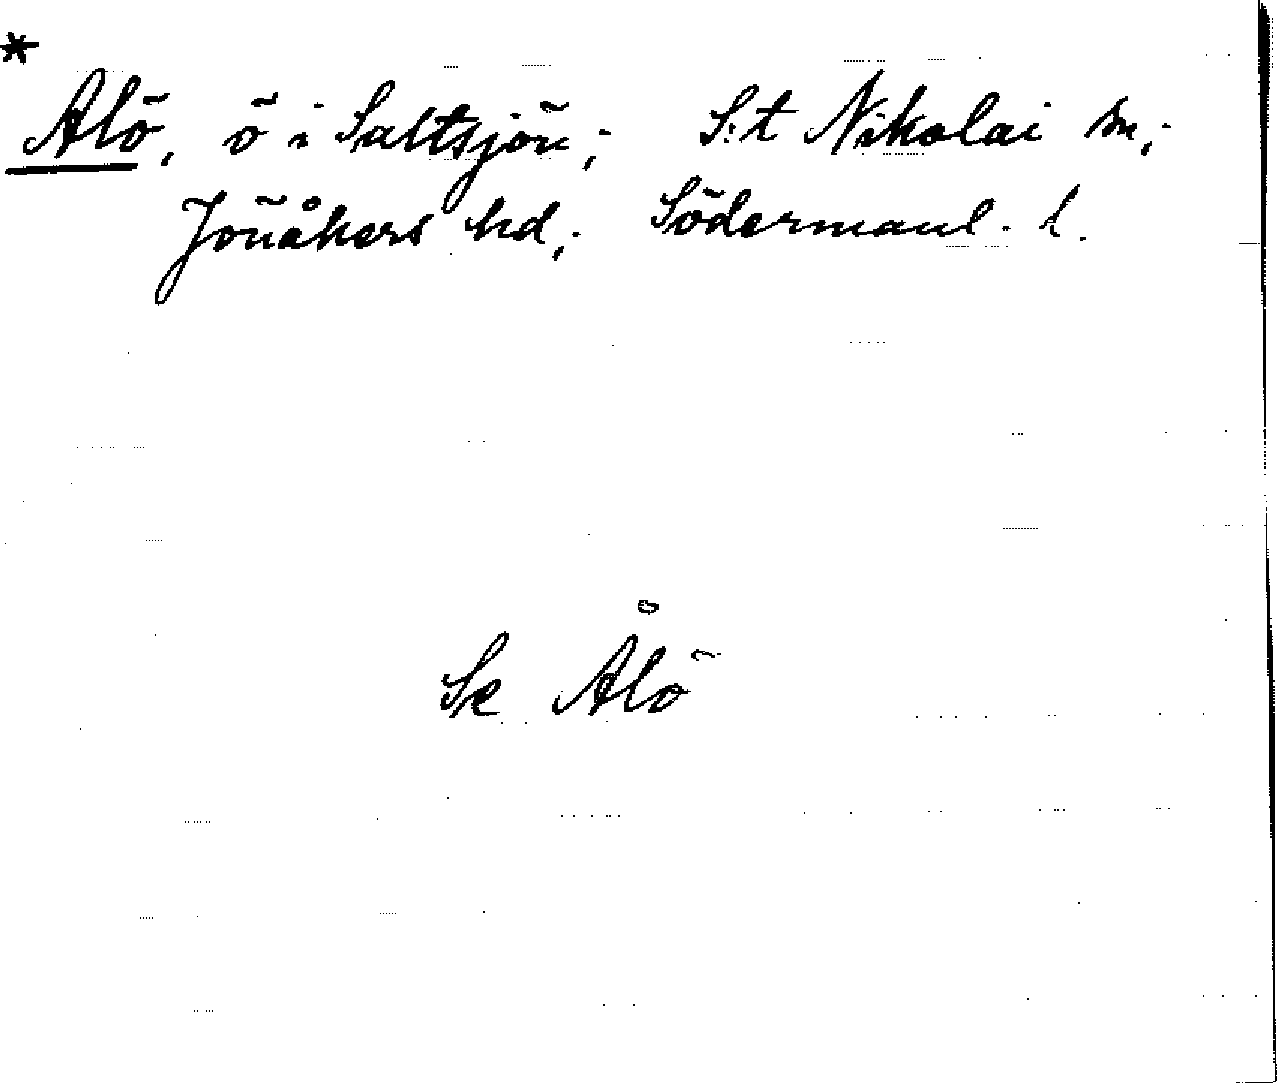 *
Alö, ö i Saltsjön; S:t Nikolai sn;
Jönåkers hd; Södermanl. l.
Se Ålö